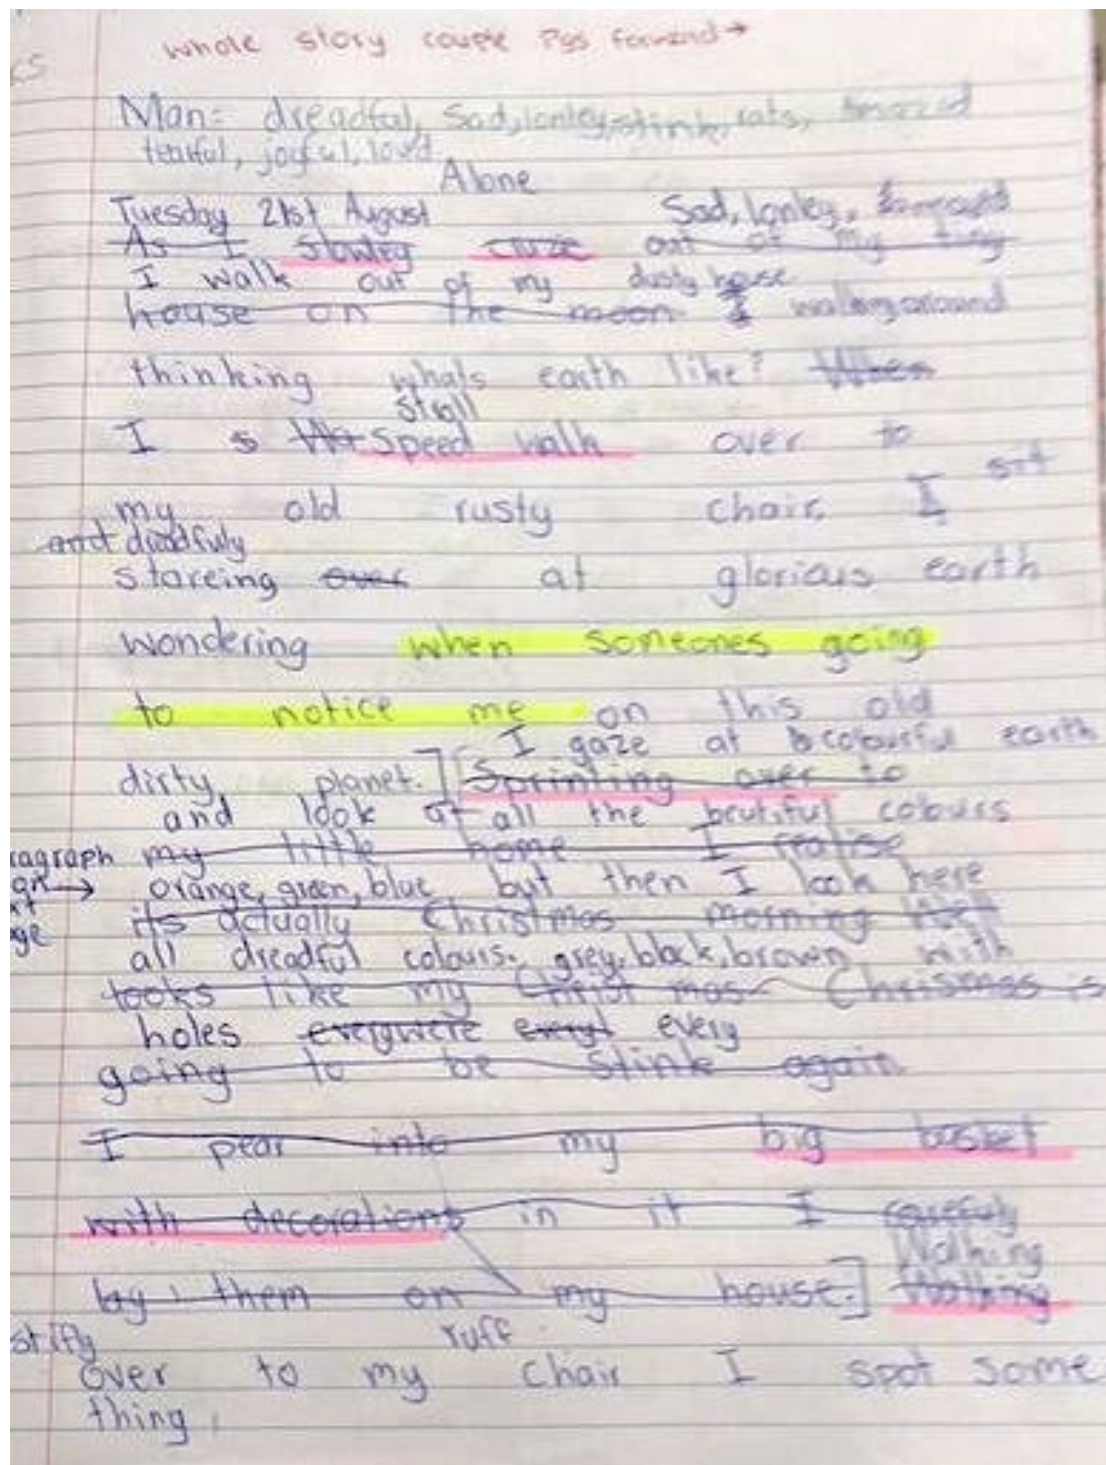 whole story couple Pgs forward→
Man= dreadful, Sad, lonley, stink, rats,
tearful, joyful, loud
Alone
Tuesday 21st August Sad, lonley,
As I slowley out of my tiny
I walk out of my dusty house
house on the moon I walking around
thinking whats earth like? When
stroll
I s Speed walk over to
my old rusty chair. I sit
and dreadfuly
stareing over at glorious earth
wondering when someones going
to notice me on this old
I gaze at colourful earth
dirty planet.] [Sprinting over to
and look at all the beutiful colours
my little home I realise
orange, green, blue but then I look here
its actually Christmas morning Well
all dreadful colours. grey, black, brown with
looks like my Christ mas Christmas is
holes everywere every
going to be stink again
I pear into my big basket
with decorations in it I carefuly
Walking
lay them on my house.] Walking
ruff
over to my chair I spot some
thing
ragraph
→